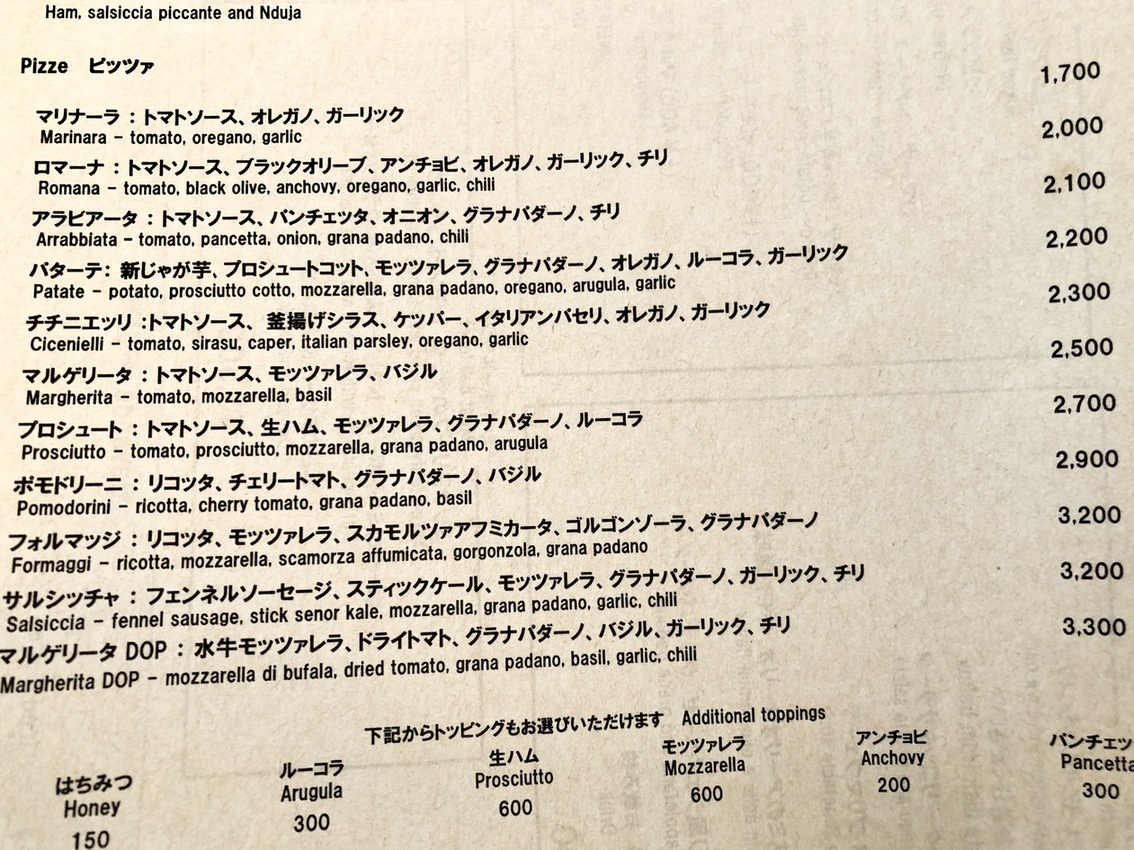 Ham, salsiccia piccante and Nduja
Pizze ピッツァ
1,700
マリナーラ : トマトソース、オレガノ、ガーリック
Marinara - tomato, oregano, garlic
2,000
ロマーナ : トマトソース、ブラックオリーブ、アンチョビ、オレガノ、ガーリック、チリ
Romana - tomato, black olive, anchovy, oregano, garlic, chili
2,100
アラビアータ : トマトソース、パンチェッタ、オニオン、グラナパダーノ、チリ
Arrabbiata - tomato, pancetta, onion, grana padano, chili
2,200
パターテ: 新じゃが芋、プロシュートコット、モッツァレラ、グラナパダーノ、オレガノ、ルーコラ、ガーリック
Patate - potato, prosciutto cotto, mozzarella, grana padano, oregano, arugula, garlic
2,300
チチニエッリ :トマトソース、 釜揚げシラス、ケッパー、イタリアンパセリ、オレガノ、ガーリック
Cicenielli - tomato, sirasu, caper, italian parsley, oregano, garlic
2,500
マルゲリータ : トマトソース、モッツァレラ、バジル
Margherita - tomato, mozzarella, basil
2,700
プロシュート : トマトソース、生ハム、モッツァレラ、グラナパダーノ、ルーコラ
Prosciutto - tomato, prosciutto, mozzarella, grana padano, arugula
2,900
ポモドリーニ : リコッタ、チェリートマト、グラナパダーノ、バジル
Pomodorini - ricotta, cherry tomato, grana padano, basil
3,200
フォルマッジ : リコッタ、モッツァレラ、スカモルツァアフミカータ、ゴルゴンゾーラ、グラナパダーノ
Formaggi - ricotta, mozzarella, scamorza affumicata, gorgonzola, grana padano
3,200
サルシッチャ : フェンネルソーセージ、スティックケール、モッツァレラ、グラナパダーノ、ガーリック、チリ
Salsiccia - fennel sausage, stick senor kale, mozzarella, grana padano, garlic, chili
3,300
マルゲリータ DOP : 水牛モッツァレラ、ドライトマト、グラナパダーノ、バジル、ガーリック、チリ
Margherita DOP - mozzarella di bufala, dried tomato, grana padano, basil, garlic, chili
下記からトッピングもお選びいただけます Additional toppings
はちみつ
Honey
150
ルーコラ
Arugula
300
生ハム
Prosciutto
600
モッツァレラ
Mozzarella
600
アンチョビ
Anchovy
200
パンチェッ
Pancetta
300